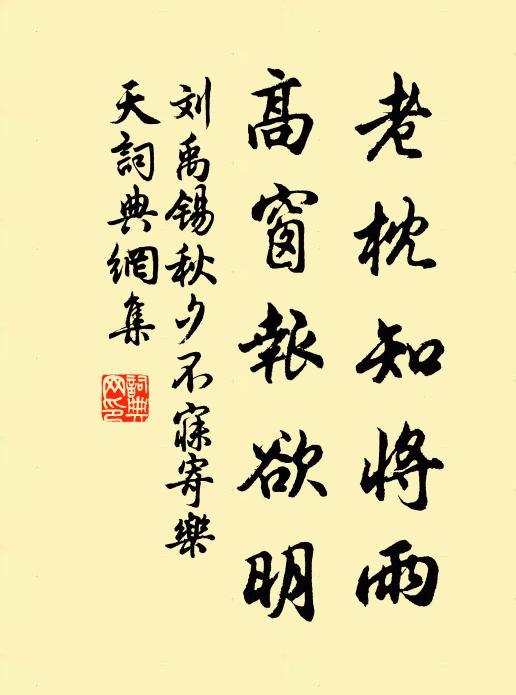 老枕知將雨
高窗報欲明
刘禹锡秋夕不寐寄樂
天詞典網集
詞典
网印